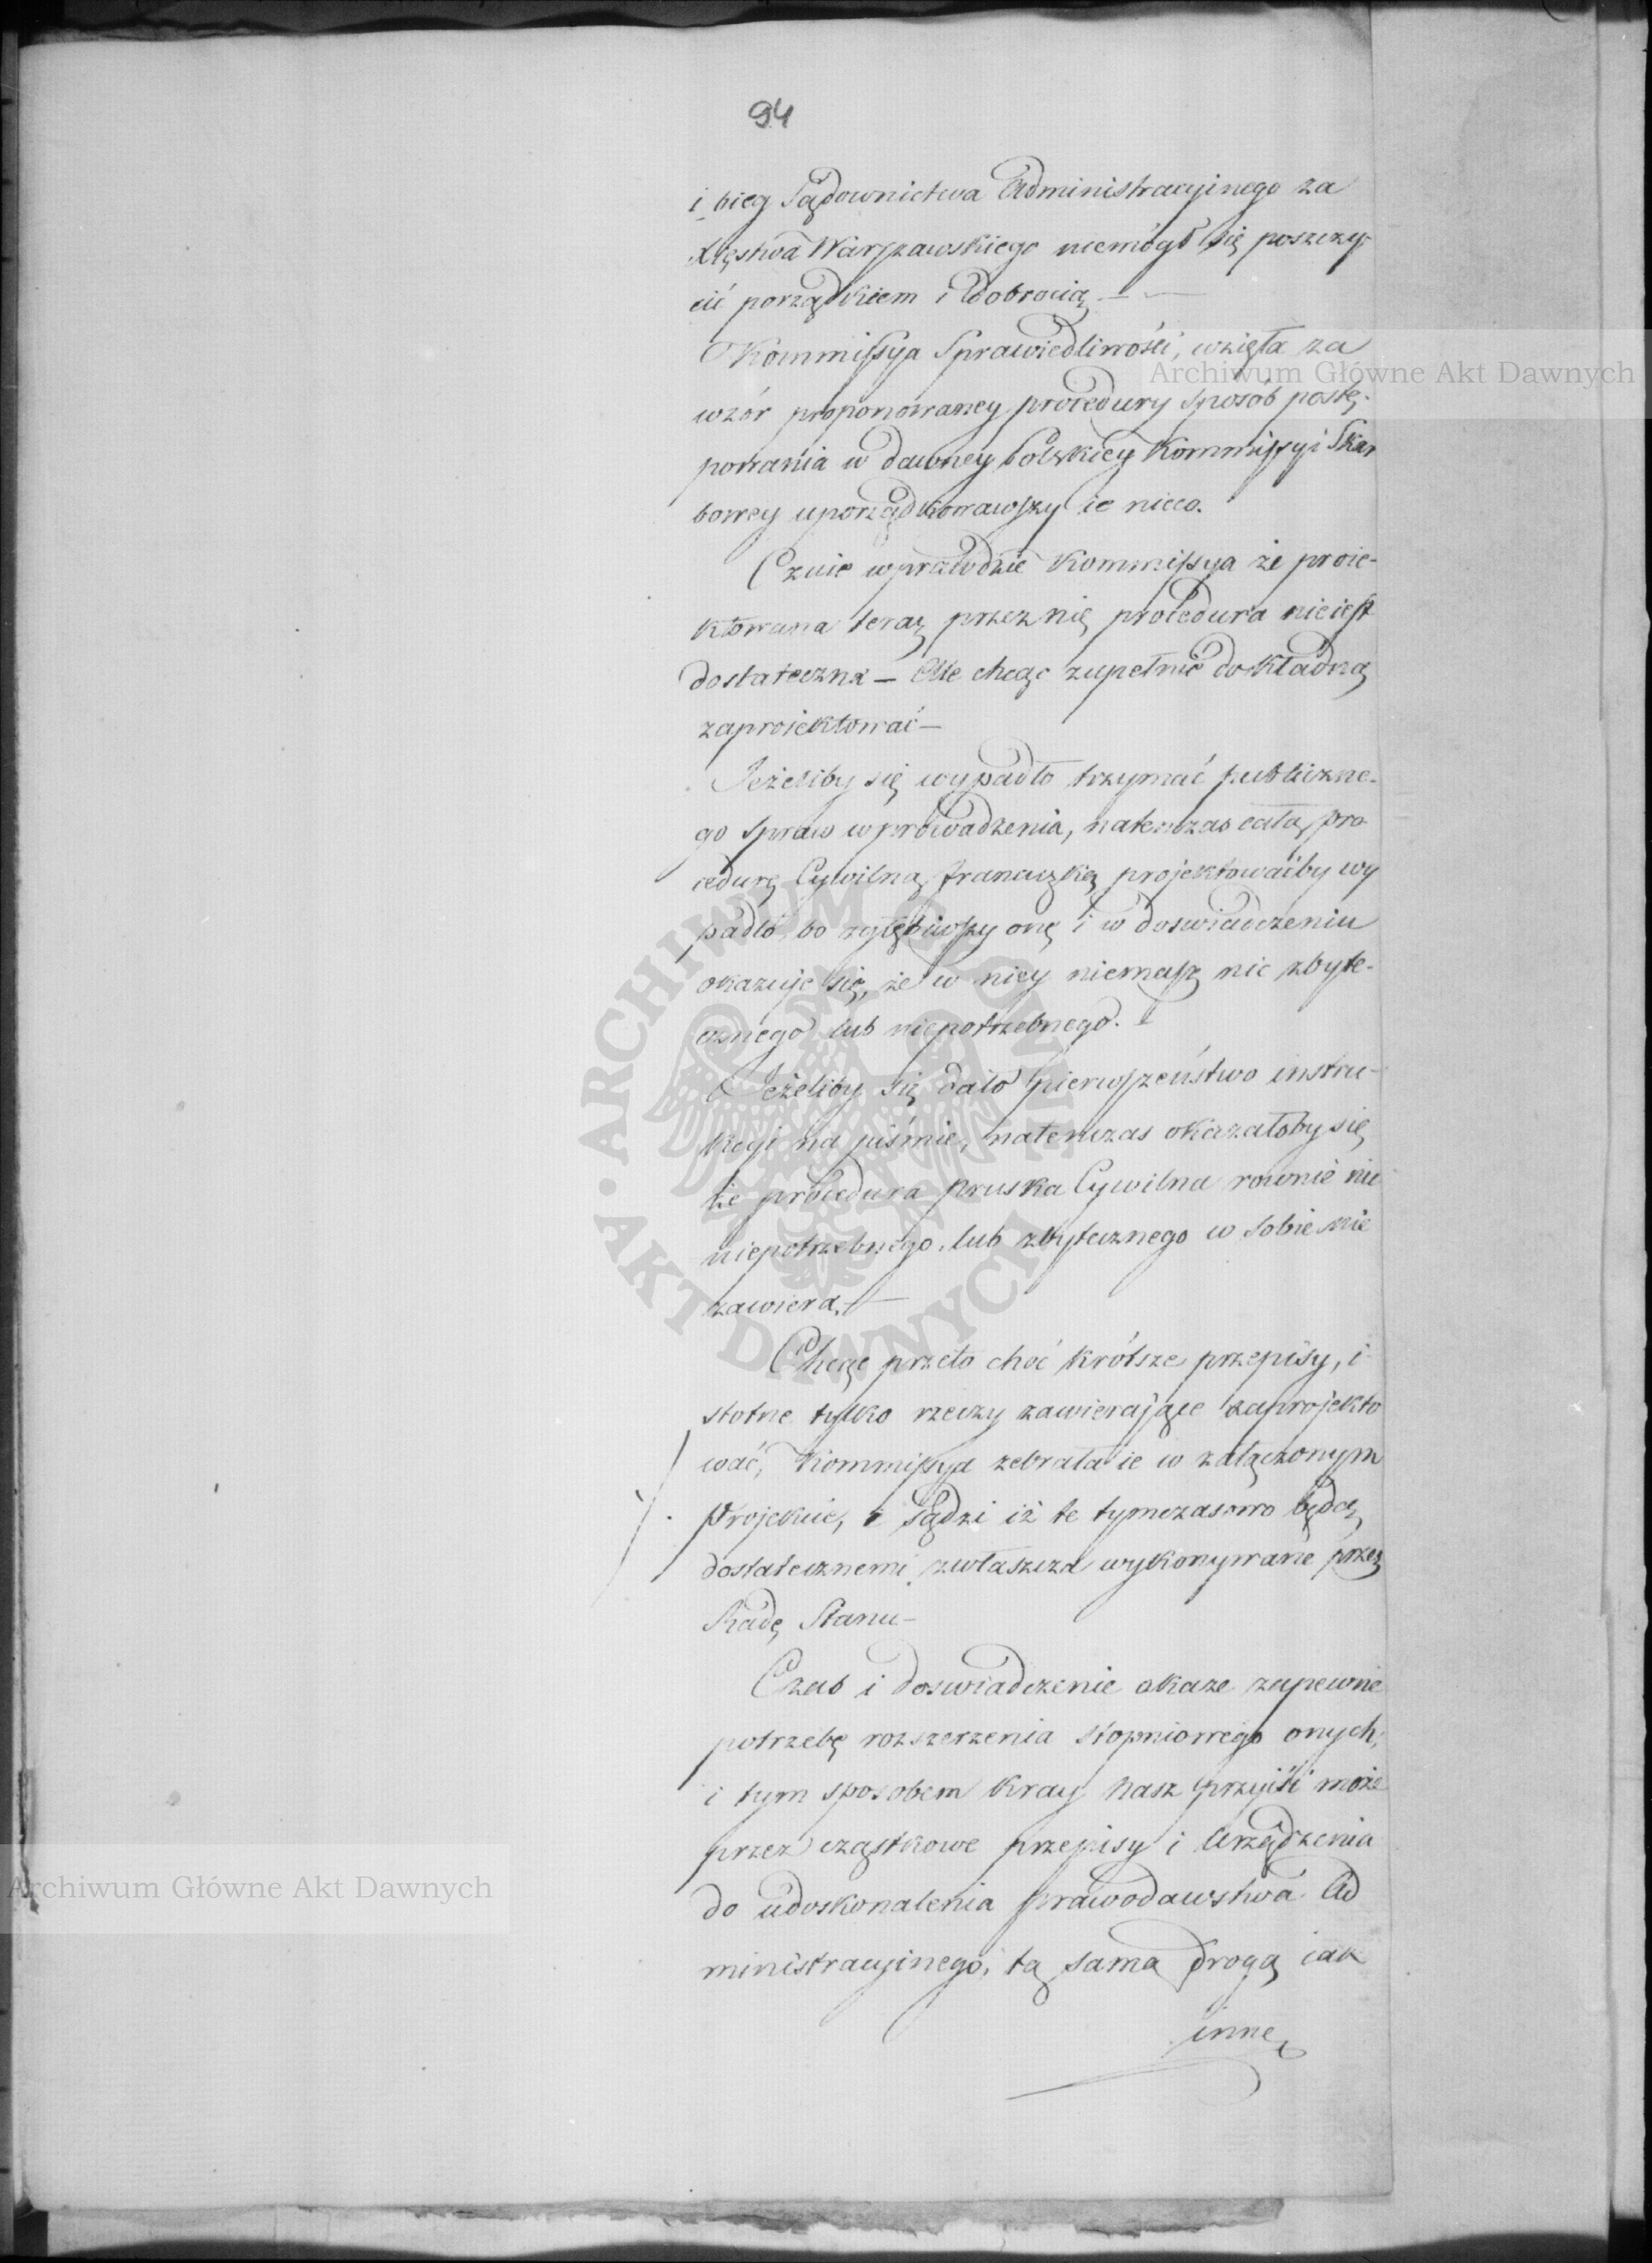 94
i bieg Sądownictwa Administracyinego za
Xięstwa Warszawskiego niemógł się poszczy-
cić porządkiem i dobrocią —
Kommissya Sprawiedliwości, wzięła za
wzór proponowaney procedury sposób postę-
powania w dawney Polskiey Kommissyi Skar
bowey uporządkowawszy ie nieco.
Czuie wprawdzie Kommissya że proie-
ktowana teraz przez nię procedura nieiest
dostateczną — Ale chcąc zupełnie dokładną
zaprojektować —
Jeżeliby się wypadło trzymać publiczne-
go spraw wprowadzenia, natenczas całą pro
cedurę Cywilną francuzką projektowaćby wy
padło, bo zgłębiwszy onę i w doswiadczeniu
okazuje się, że w niey niemasz nic zbyte-
cznego lub niepotrzebnego. —
Jeżeliby się dało pierwszeństwo instru-
kcyi na piśmie, natenczas okazałoby się
że procedura pruska Cywilna rownie nic
niepotrzebnego, lub zbytecznego w sobie nie
zawiera. —
Chcąc przeto choć krótsze przepisy, i
stotne tylko rzeczy zawierające zaprojekto
wać, Kommissya zebrała ie w załączonym
Projekcie, i sądzi iż te tymczasowo będą
dostatecznemi zwłaszcza wykonywane przez
Radę Stanu —
Czas i doswiadczenie okaze zapewne
potrzebę rozszerzenia stopniowego onych,
i tym sposobem Kray nasz przyiść może
przez cząstkowe przepisy i Urządzenia
do udoskonalenia prawodawstwa Ad
ministracyinego, tą samą drogą iak
inne
Archiwum Główne Akt Dawnych
Archiwum Główne Akt Dawnych
ARCHIWUM GŁÓWNE
AKT DAWNYCH